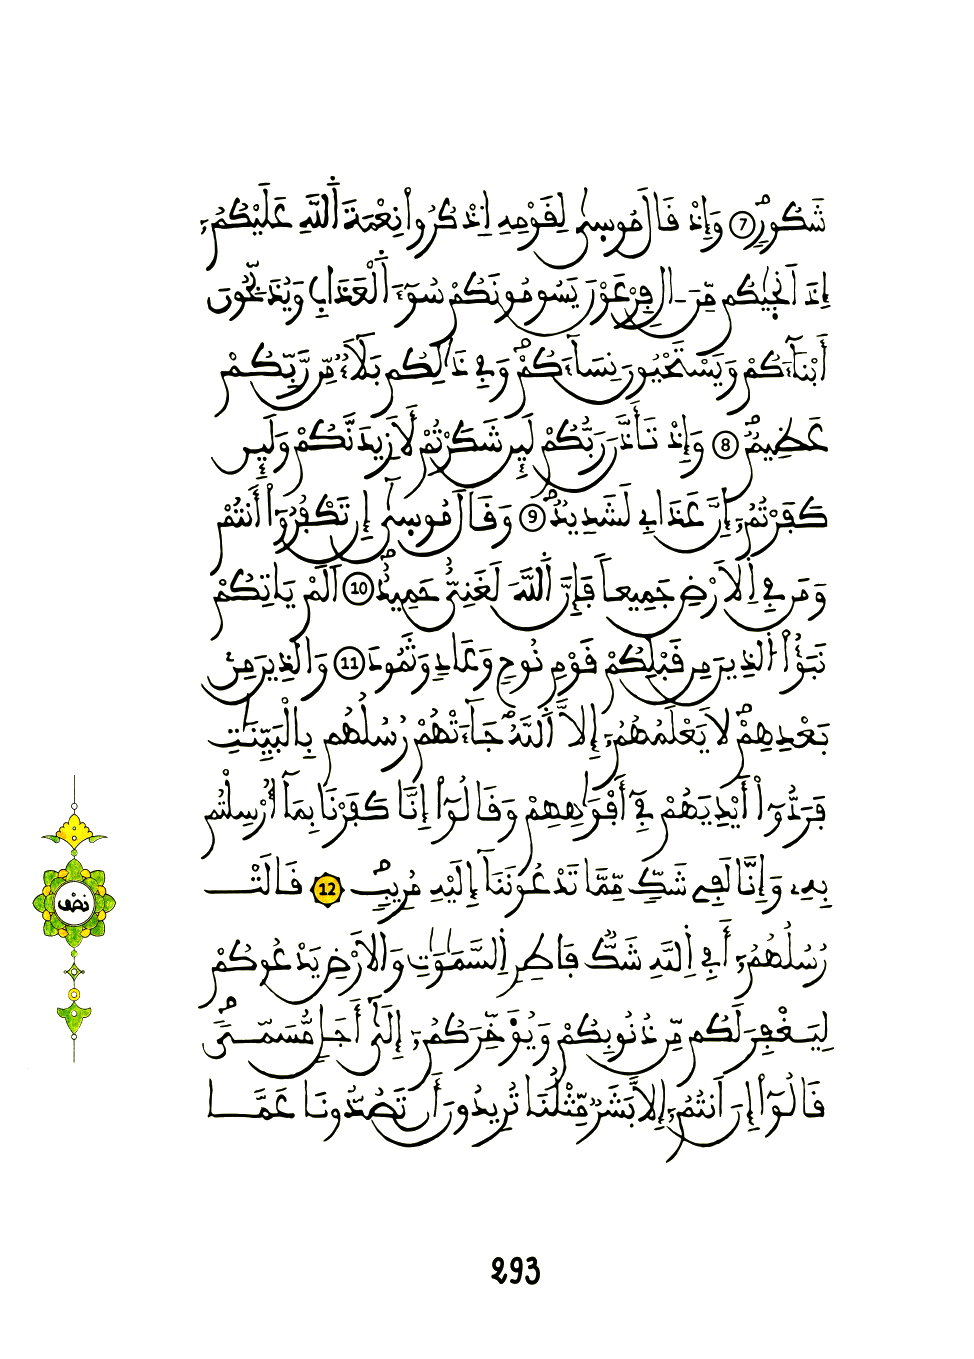 شَكُورٍ 7 وَإِذْ قَالَ مُوسِىٰ لِقَوْمِهِ اِ۟ذْكُرُواْ نِعْمَةَ اَ۬للَّهِ عَلَيْكُمُۥٓ
إِذَ اَنج۪يٰكُم مِّنَ اٰلِ فِرْعَوْنَ يَسُومُونَكُمْ سُوٓءَ اَ۬لْعَذَابِ وَيُذَبِّحُونَ
أَبْنَآءَكُمْ وَيَسْتَحْيُونَ نِسَآءَكُمْ وَفِے ذَٰلِكُم بَلَآءٌ مِّن رَّبِّكُمْ
عَظِيمٌ 8 وَإِذْ تَأَذَّنَ رَبُّكُمْ لَئِن شَكَرْتُمْ لَأَزِيدَنَّكُمْ وَلَئِن
كَفَرْتُمُۥٓ إِنَّ عَذَابِے لَشَدِيدٌ 9 وَقَالَ مُوسِىٰٓ إِن تَكْفُرُوٓاْ أَنتُمْ
وَمَن فِے اِ۬لَارْضِ جَمِيعاً فَإِنَّ اَ۬للَّهَ لَغَنِيٌّ حَمِيدٌ 10 اَلَمْ يَاتِكُمْ
نَبَؤُاْ اُ۬لذِينَ مِن قَبْلِكُمْ قَوْمِ نُوحٍ وَعَادٍ وَثَمُودَ 11 وَالذِينَ مِنۢ
بَعْدِهِمْ لَا يَعْلَمُهُمُۥٓ إِلَّا اَ۬للَّهُ جَآءَتْهُمْ رُسُلُهُم بِالْبَيِّنَٰتِ
فَرَدُّوٓاْ أَيْدِيَهُمْ فِےٓ أَفْوَٰهِهِمْ وَقَالُوٓاْ إِنَّا كَفَرْنَا بِمَآ أُرْسِلْتُم
بِهِۦ وَإِنَّا لَفِے شَكٍّ مِّمَّا تَدْعُونَنَآ إِلَيْهِ مُرِيبٍ 12 قَالَتْ
رُسُلُهُمُۥٓ أَفِے اِ۬للَّهِ شَكٌّ فَاطِرِ اِ۬لسَّمَٰوَٰتِ وَالَارْضِ يَدْعُوكُمْ
لِيَغْفِرَ لَكُم مِّن ذُنُوبِكُمْ وَيُؤَخِّرَكُمُۥٓ إِلَىٰٓ أَجَلٍ مُّسَمّىً
قَالُوٓاْ إِنَ اَنتُمُۥٓ إِلَّا بَشَرٌ مِّثْلُنَا تُرِيدُونَ أَن تَصُدُّونَا عَمَّا
نصف
293